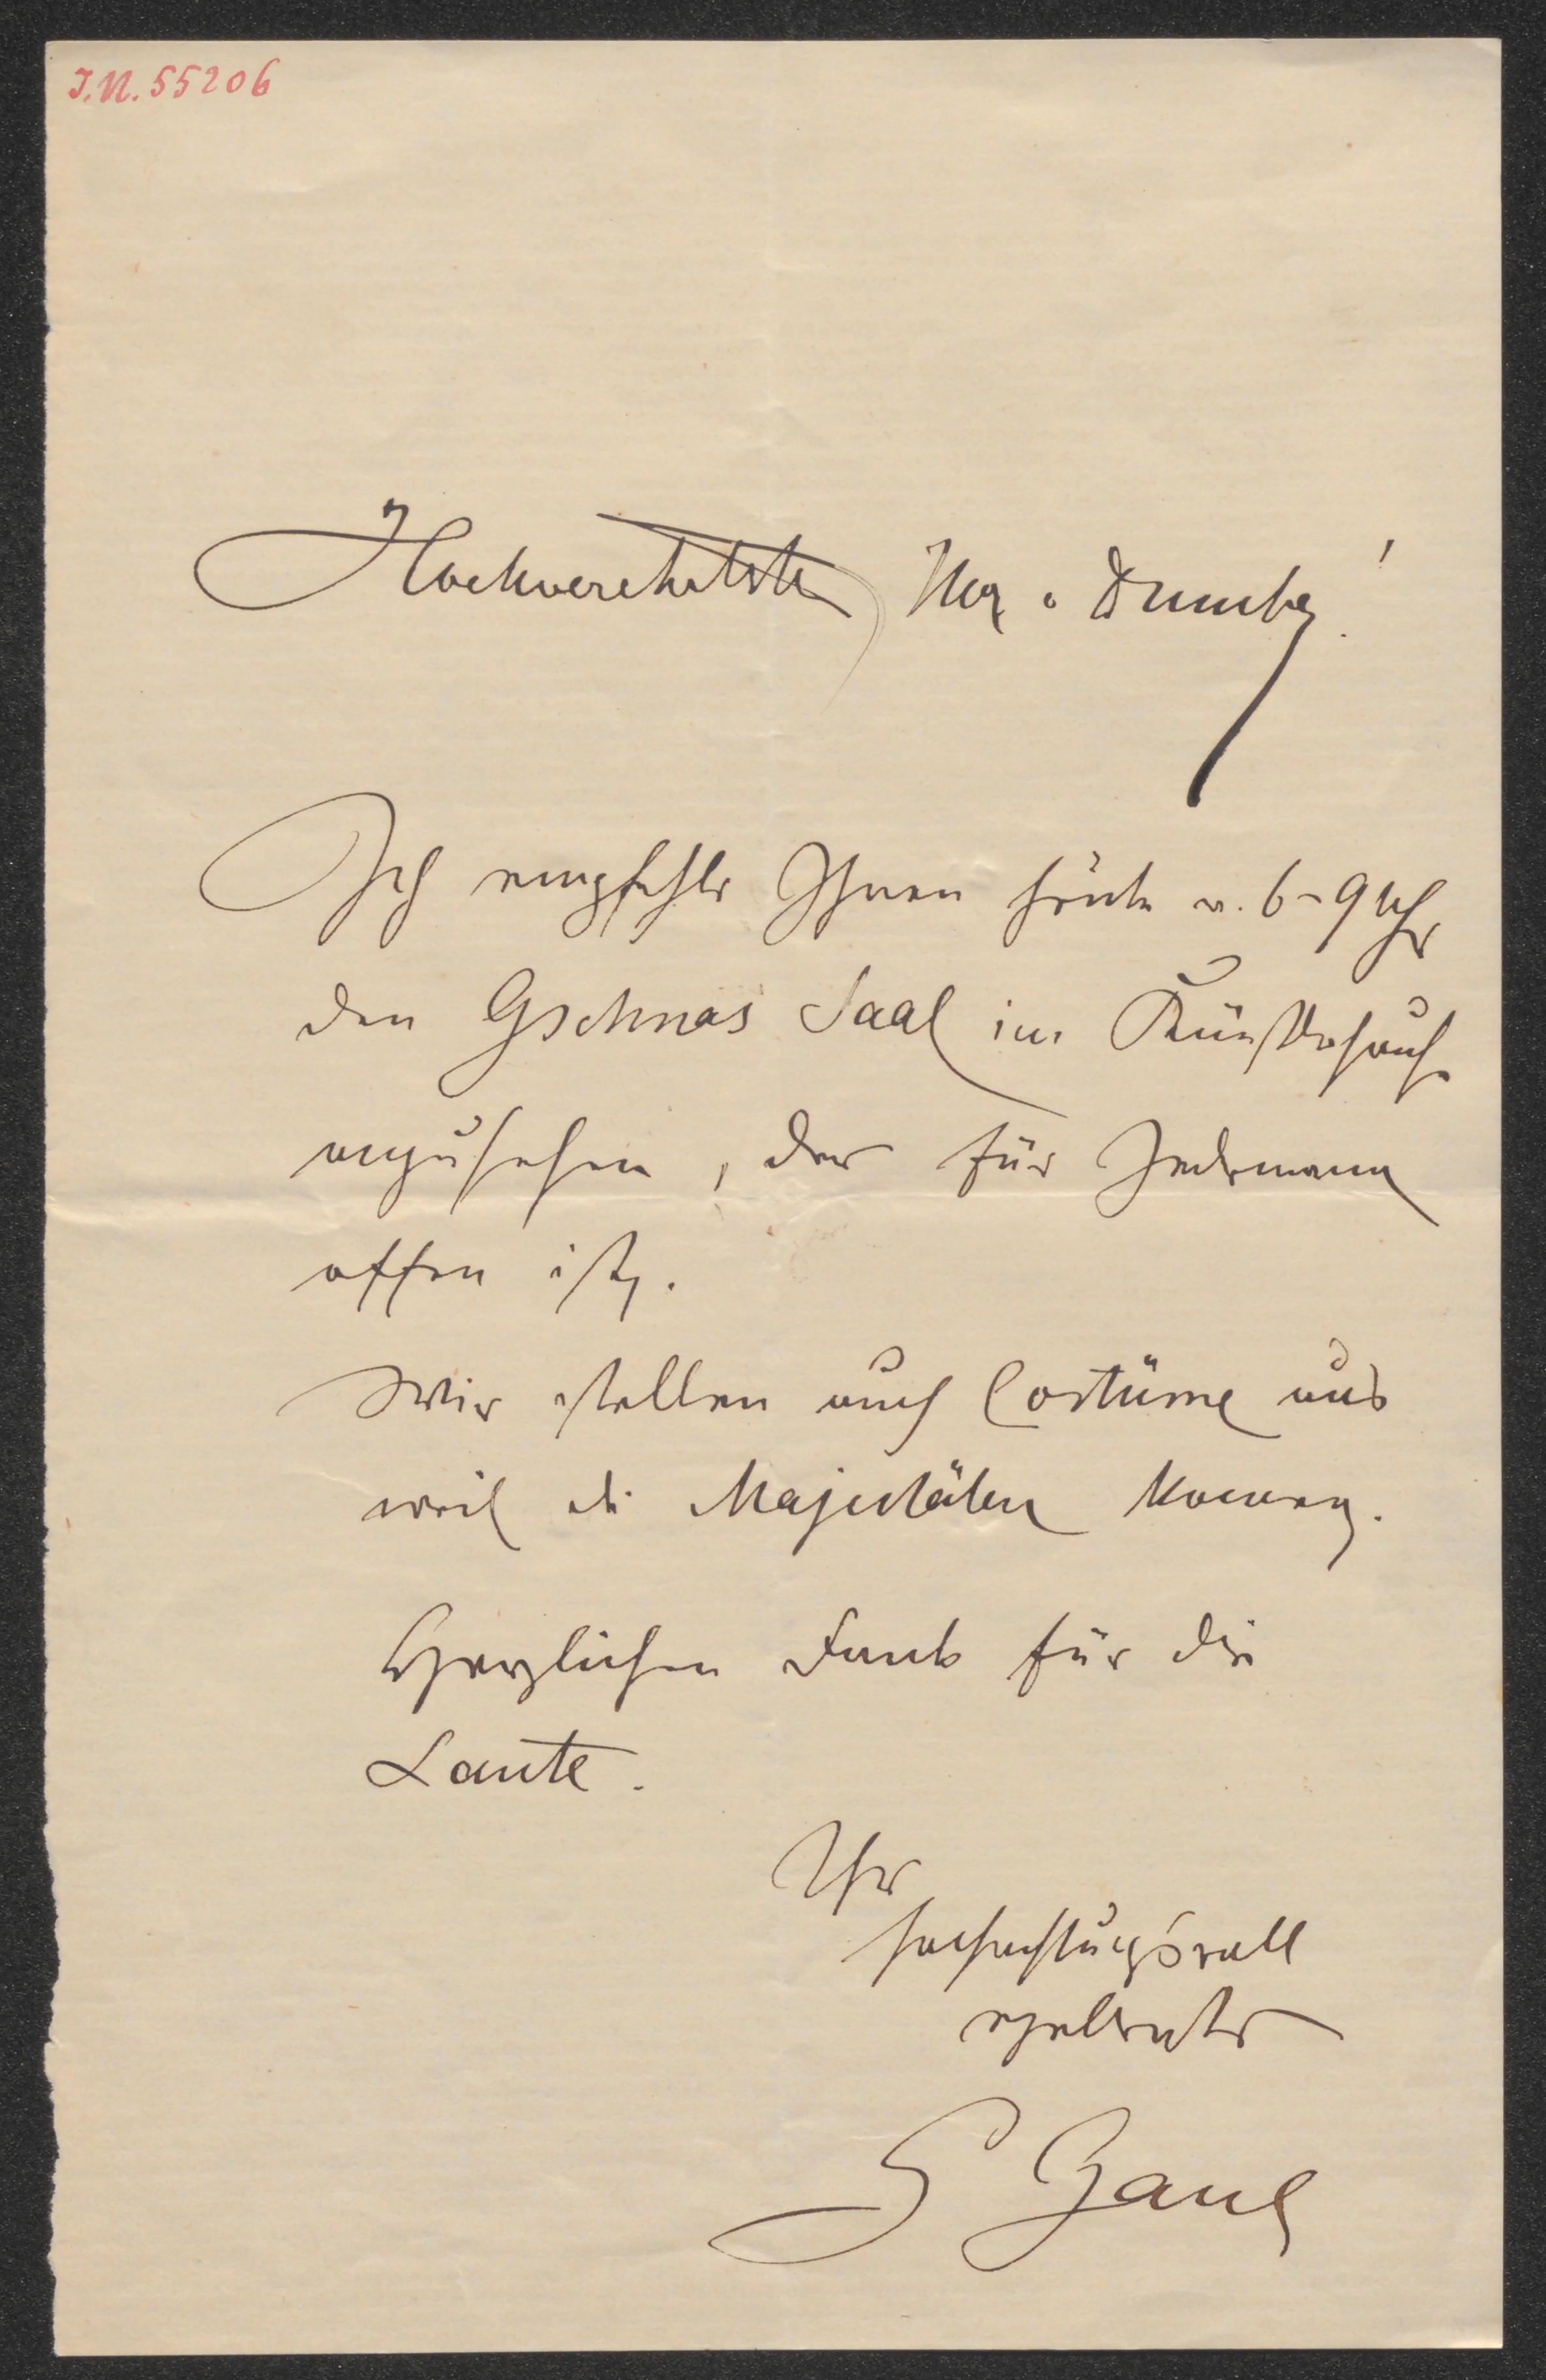 I.N. 55206
Hochverehrtester Herr v Dumba!
Ich empfehle Ihnen heute v. 6-9 Uhr
den Gschnas Saal im Künstlerhause
anzusehen, der für Jedermann
offen ist.
Wir stellen auch Costüme aus
weil die Majestäten kommen.
Herzlichen Dank für die
Laute.
Ihr
hochachtungsvoll
ergebenster
G Gaul